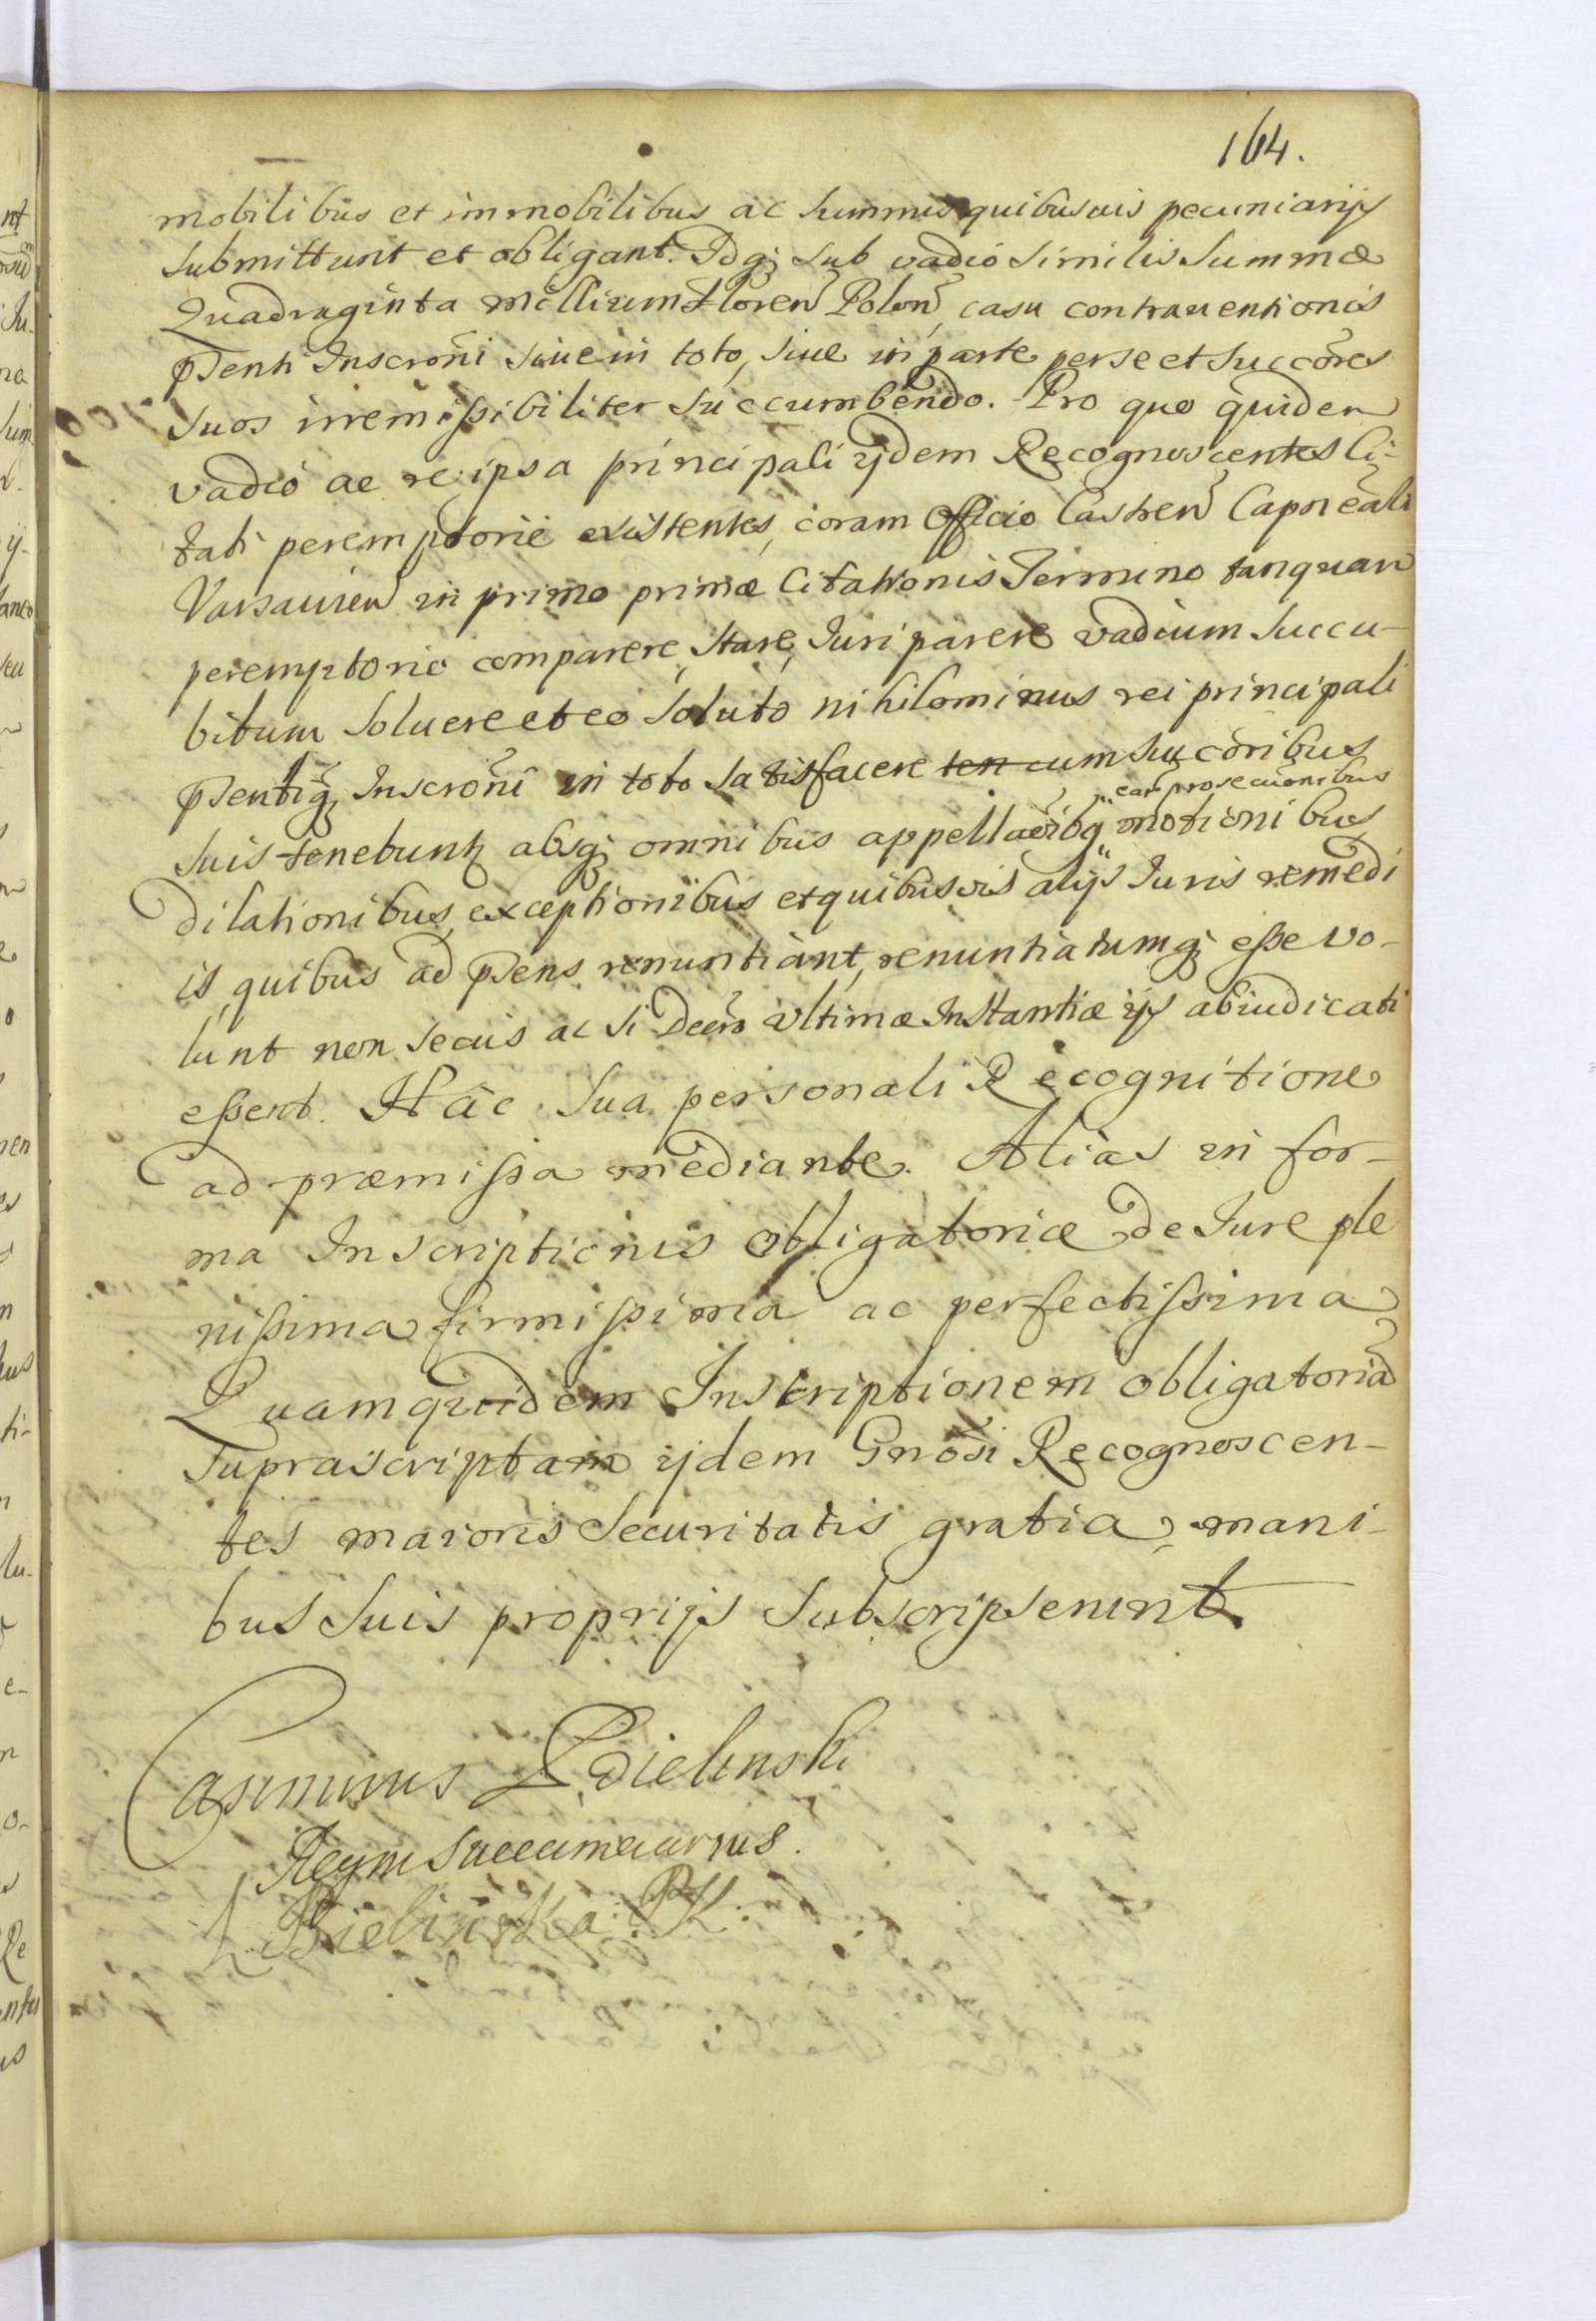 164.
mobilibus et immobilibus ac summis quibusvis pecuniarijs
submittunt et obligant. Idq; sub vadio similis summæ
Quadraginta Millium Floren̄ Polon̄, casu contrauentionis
p̄senti Inscrōni siue in toto, siue in parte per se et succōres
suos irremissibiliter succumbendo. Pro quo quidem
vadio ac re ipsa principali ijdem Recognoscentes Ci-
tati peremptorie existentes, coram Officio Castren̄ Capnēali
Varsauien̄ in primo primæ Citationis Termino tanquam
peremptorio comparere, stare, Iuri parere vadium succu-
bitum soluere et eo soluto nihilominus rei principali
p̄sentiq; Inscrōni in toto satisfacere ten cum succōribus
suis tenebunt absq; omnibus appellāōnibq, ear̄ prosecuōnibus motionibus
dilationibus, exceptionibus et quibusvis alijs Iuris remedi
is, quibus ad p̄sens renuntiant, renuntiatumq; esse vo-
lunt non secus ac si Decr̄o vltimæ Instantiæ ijs abiudicati
essent. Hâc sua personali Recognitione
ad præmissa mediante. Alias in for-
ma Inscriptionis obligatoriæ de Iure ple
nissima firmissima ac perfectissima
Quamquidem Inscriptionem obligatoriā
suprascriptam ijdem Gnōsi Recognoscen-
tes maioris securitatis gratia, mani-
bus suis proprijs subscripserunt
Casimirus Bielinski
Regni Succamerarius.
L Bielinska PK: